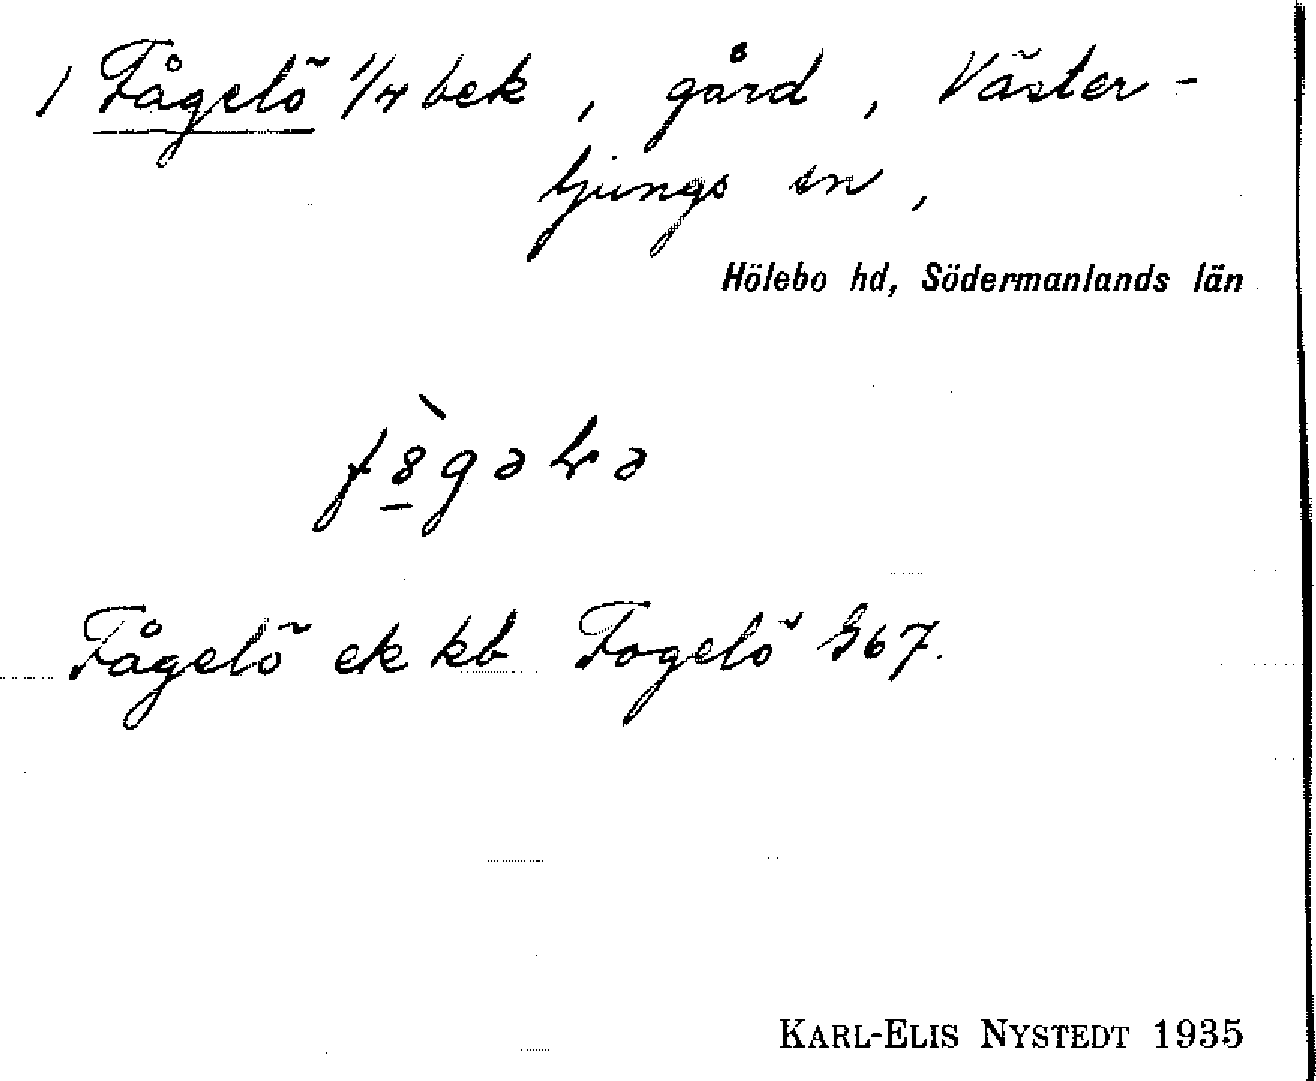 1 Fågelö 1/4 bek, gård, Väster-
ljungs sn,
Hölebo hd, Södermanlands län
Fågelö ek kb Fogelö G67.
KARL-ELIS NYSTEDT 1935